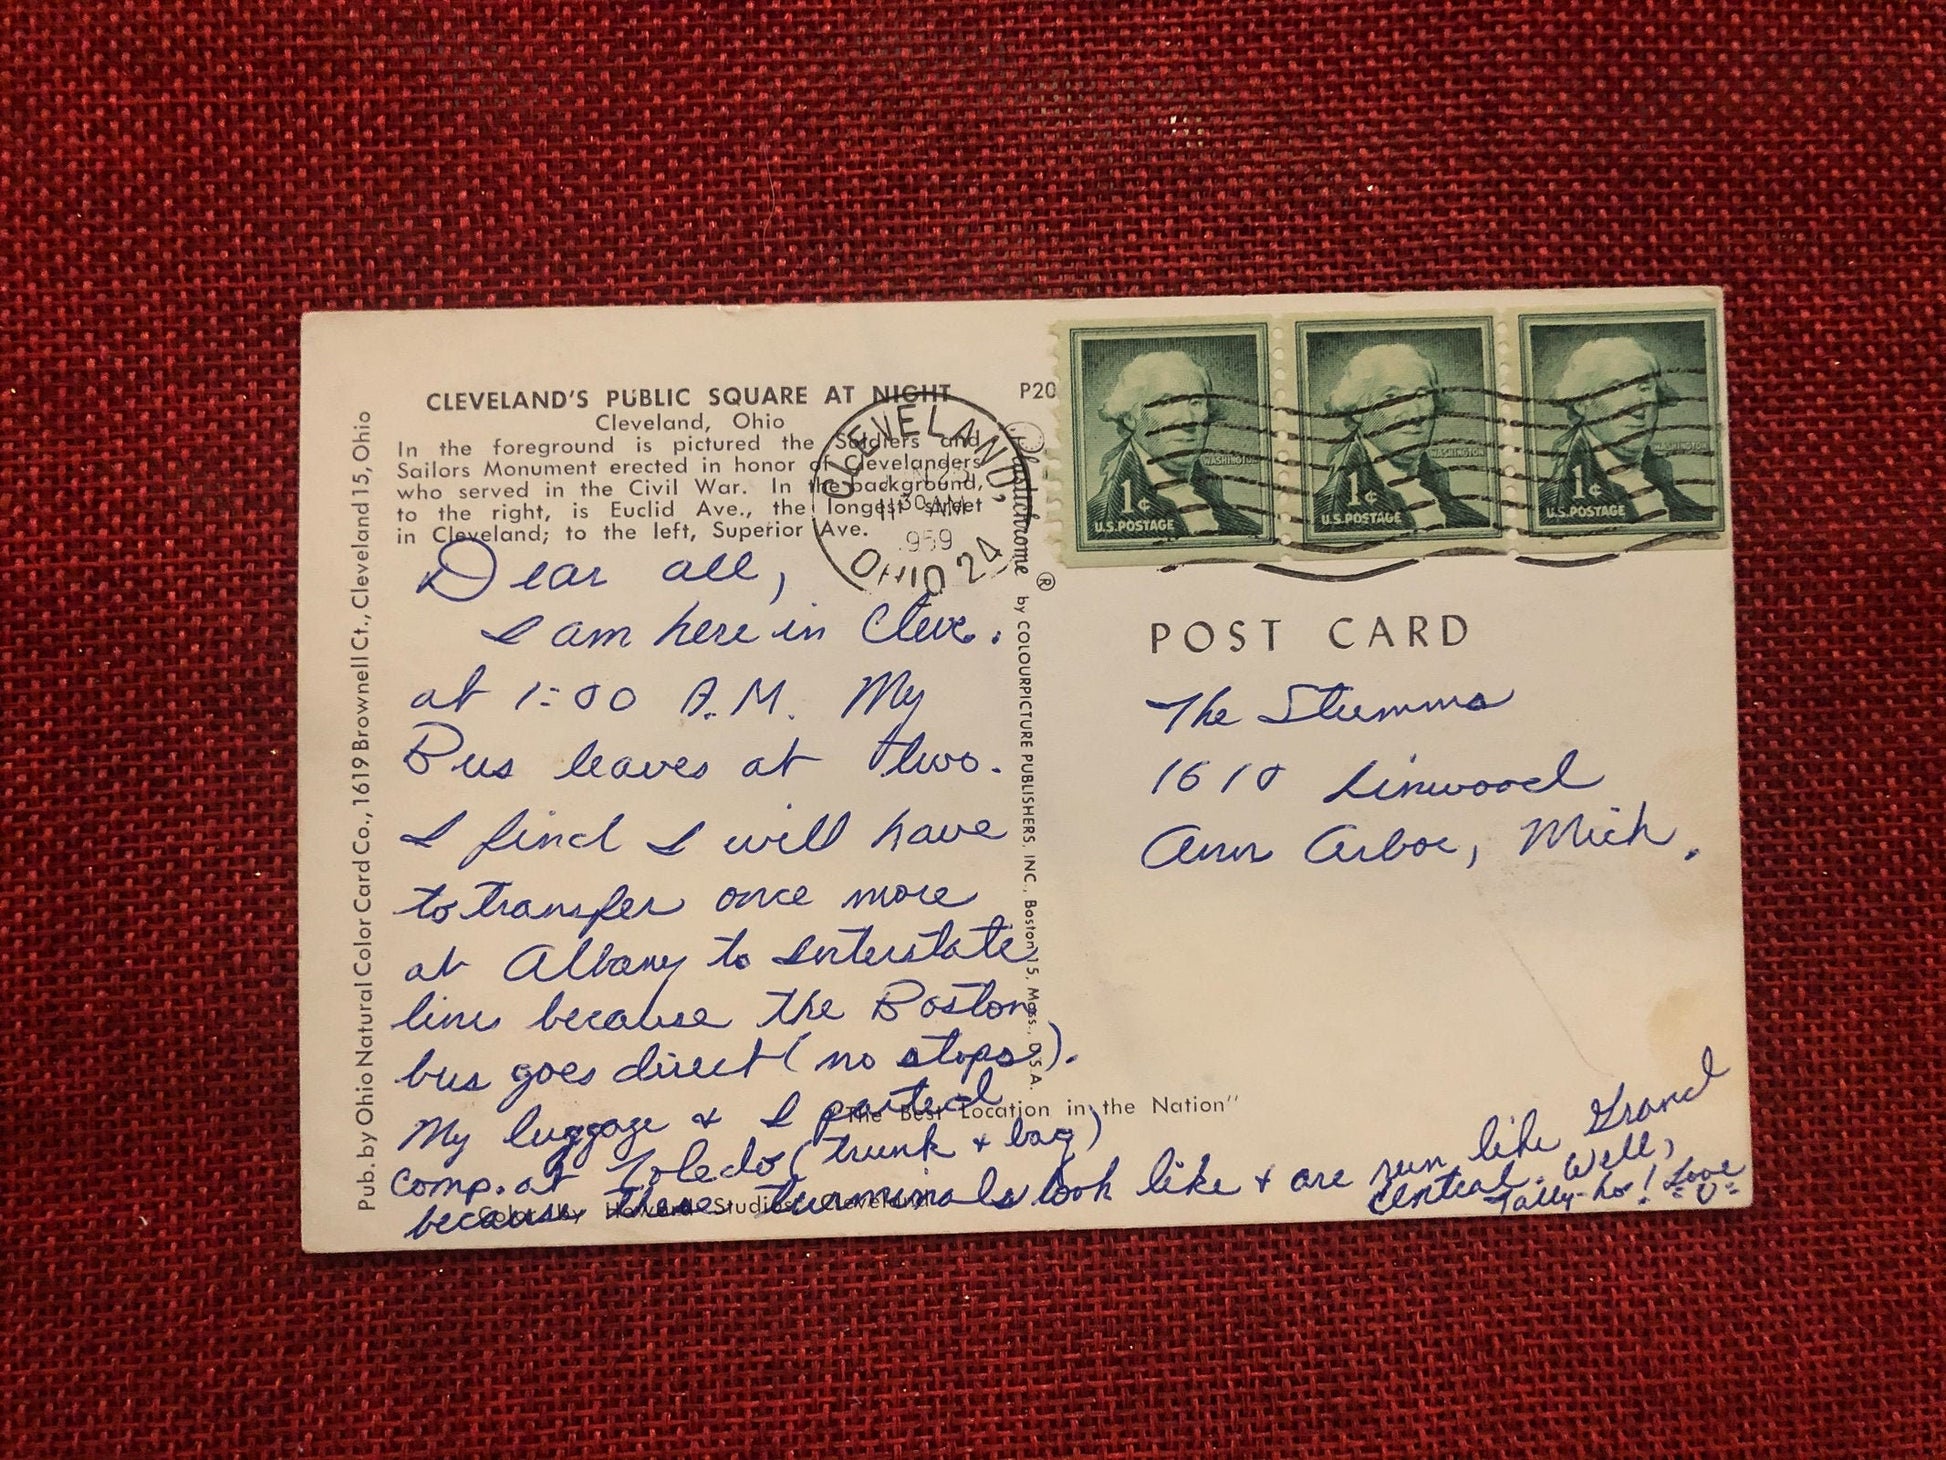 CLEVELAND'S PUBLIC SQUARE AT NIGHT
Cleveland, Ohio
In the foreground is pictured the Soldiers and
Sailors Monument erected in honor of Clevelanders
who served in the Civil War. In the background,
to the right, is Euclid Ave., the longest street
in Cleveland; to the left, Superior Ave.
P20
CLEVELAND,
30 AM
1959
OHIO 24
Pub. by Ohio Natural Color Card Co., 1619 Brownell Ct., Cleveland 15, Ohio
Plastichrome ® by COLOURPICTURE PUBLISHERS, INC., Boston 15, Mass., U.S.A.
WASHINGTON
1¢
U.S. POSTAGE
WASHINGTON
1¢
U.S. POSTAGE
WASHINGTON
1¢
U.S. POSTAGE
Dear all,
I am here in Cleve.
at 1:00 A.M. My
Bus leaves at two.
I find I will have
to transfer once more
at Albany to Interstate
lines because the Boston
bus goes direct (no stops).
My luggage & I parted
comp. at Toledo (trunk & bag)
because these turminals look like & are run like Grand
Central. Well,
Tally-ho! Love
POST CARD
The Stumms
1610 Linwood
Ann Arbor, Mich.
"The Best Location in the Nation"
Color by Howard Studios, Cleveland